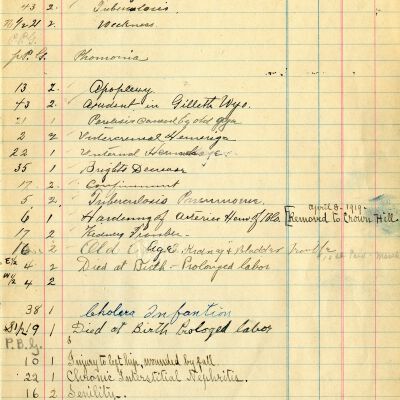 43 2. Tuberculosis.
2. Weakness.
P.B.G.
P. G. Phomonia
13 2. Apoplexy
43 2. Axident in Gilleth Wyo.
21 1 Paresis caused by old age
2 2 Hemoriga
22 1 Internal
35 1 Brights Decease
17 2. Confinment
5 2. Tuberculosis
April 3-1919-
6 1 Hardening of Arteries Hem of [Removed to Crown Hill.
17 2 Kidney Trouble.
16 2 Old Age Kidney & Bladder Trouble
E½ 4 2 Died at Birth - Prolonged labor
W½ 4 2
38 1 Cholera Infantion
S½ 19 1 Died at Birth Prologed labor
P.B.G. 8
10 1 Injury to left hip, wounded by fall
22 1 Chronic Interstitial Nephretes.
16 2 Senility.